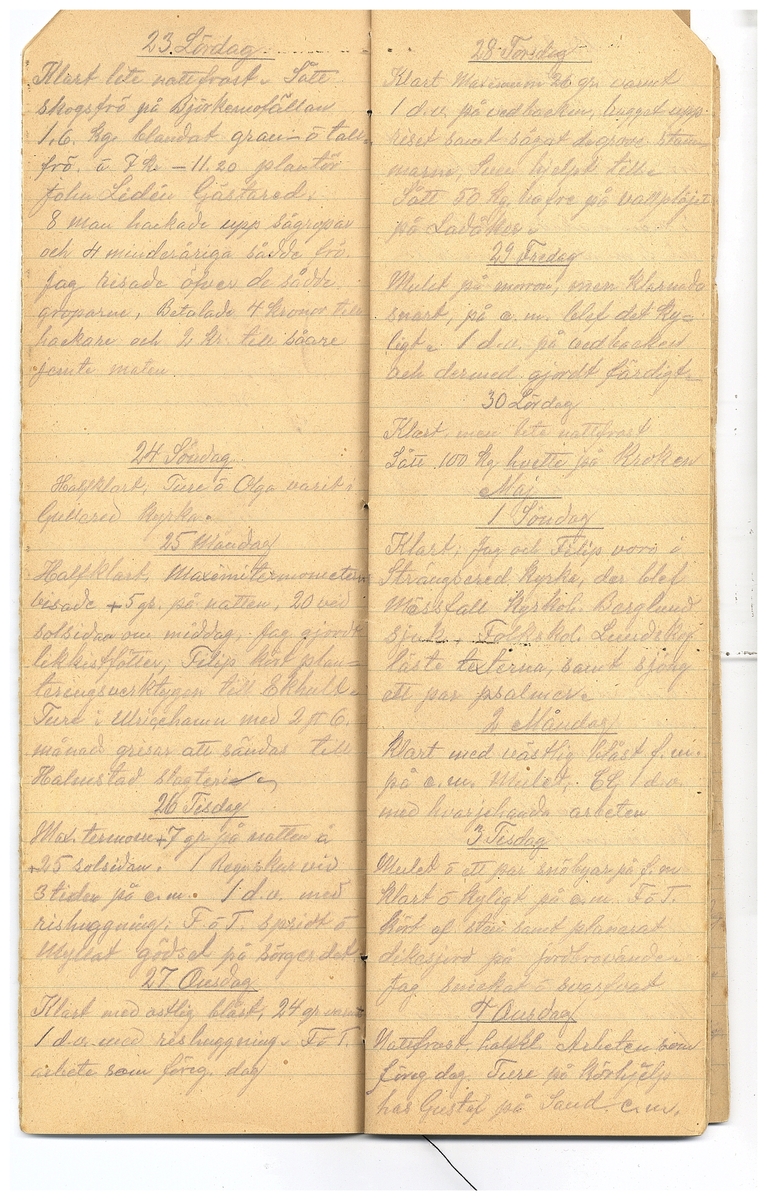 23 Lördag
Klart lite nattfrost. Sått
skogsfrö på Björkemofällan
1.6. kg. blandat gran- ö tall-
frö. á 7 kr - 11.20 plantör
John Lidén Gjästared.
8 man hackade upp sågropar
och 4 minderåriga sådde frö
Jag risade öfver de sådde
groparne, Betalade 4 kronor till
hackare och 2 kr. till såare
jemte maten.
24 Söndag
Halfklart, Ture ö Olga varit i
Gullared kyrka.
25 Måndag
Halfklart, Maximitermometern
visade +5 gr. på natten, 20 vid
solsidan om middag. Jag gjordt
likkistfötter; Filip kört plan=
teringsverktygen till Ekhult.
Ture i Ulricehamn med 2 st 6.
månad grisar att sändas till
Halmstad slagteri
26 Tisdag
Max. termom +7 gr på natten ö
+25 solsidan. 1 Regnskur vid
3 tiden på e.m. 1 d.v. med
rishuggning; F ö T. spridt ö
Myllat gödsel på
27 Onsdag
Klart med ostlig blåst, 24 gr varmt
1 d.v. med rishuggning. F ö T.
arbete som föreg. dag
28 Torsdag
Klart Maximum 26 gr. varmt
1 d.v. på vedbacken, hugget upp
riset samt sågat de grova stam-
marne, Ture hjelpt till.
Sått 50 kg. hafre på vallplöjet
på Ladåker.
29 Fredag
Mulet på moron, men klarnade
snart, på e.m. blef det ky=
ligt. 1 d.v. på vedbacken
och dermed gjordt färdigt.
30 Lördag
Klart men lite nattfrost
Sått 100 kg hvete på Kroken
Maj
1 Söndag
Klart; Jag och Filip voro i
Strängsered kyrka, der blef
Mässfall Kyrkoh. Berglund
sjuk. Folkskol. Lundskog
läste texterna, samt sjöng
ett par psalmer.
2 Måndag
Klart med västlig blåst f.m.
på e.m. Mulet, 1 d.v.
med hvarjehanda arbeten
3 Tisdag
Mulet ö ett par snöbyar på f.m
klart ö kyligt på e.m. F ö T.
kört af sten samt planerat
dikesjord på
Jag snickat ö svarfvat
4 Onsdag
Nattfrost, halfkl. Arbeten som
föreg dag. Ture på körhjelp
hos Gustaf på Sand. e.m.